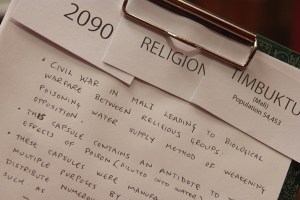 2090
RELIGION
TIMBUKTU
(Mali)
Population 54,453
• CIVIL WAR IN MALI LEADING TO BIOLOGICAL
WARFARE BETWEEN RELIGIOUS GROUPS.
POISONING WATER SUPPLY METHOD OF WEAKENING
OPPOSITION.
• THIS CAPSULE CONTAINS AN ANTIDOTE TO THE
EFFECTS OF POISON (DILUTED INTO WATER)
• THESE CAPSULES WERE MANUFA
MULTIPLE PURPOSES BY
DISTRIBUTE NUMERO
SUCH AS